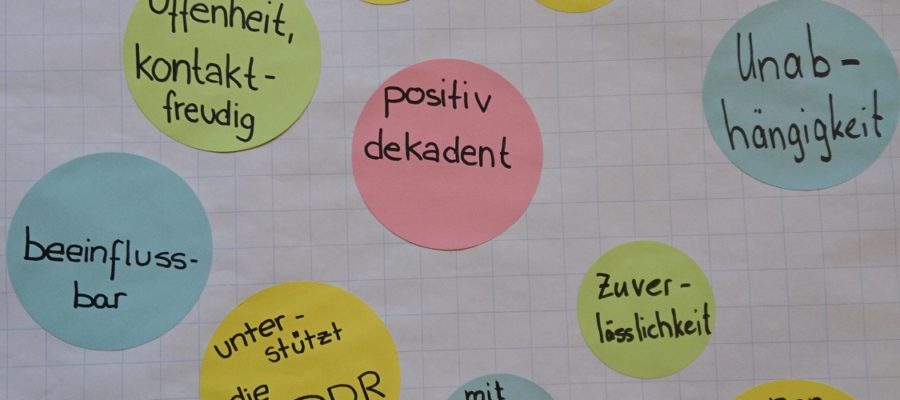 Offenheit,
kontakt-
freudig
positiv
dekadent
Unab-
hängigkeit
beeinfluss-
bar
Zuver-
lässlichkeit
unter-
stützt
die DDR
mit